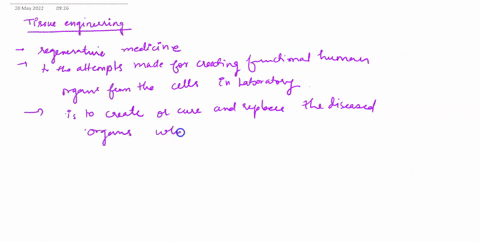 20 May 2022 09:26
Tissue engineering
→ regenerative medicine
→ to the attempts made for creating functional human
organs from the cells in Laboratory
→ is to create or cure and replace the diseased
organs